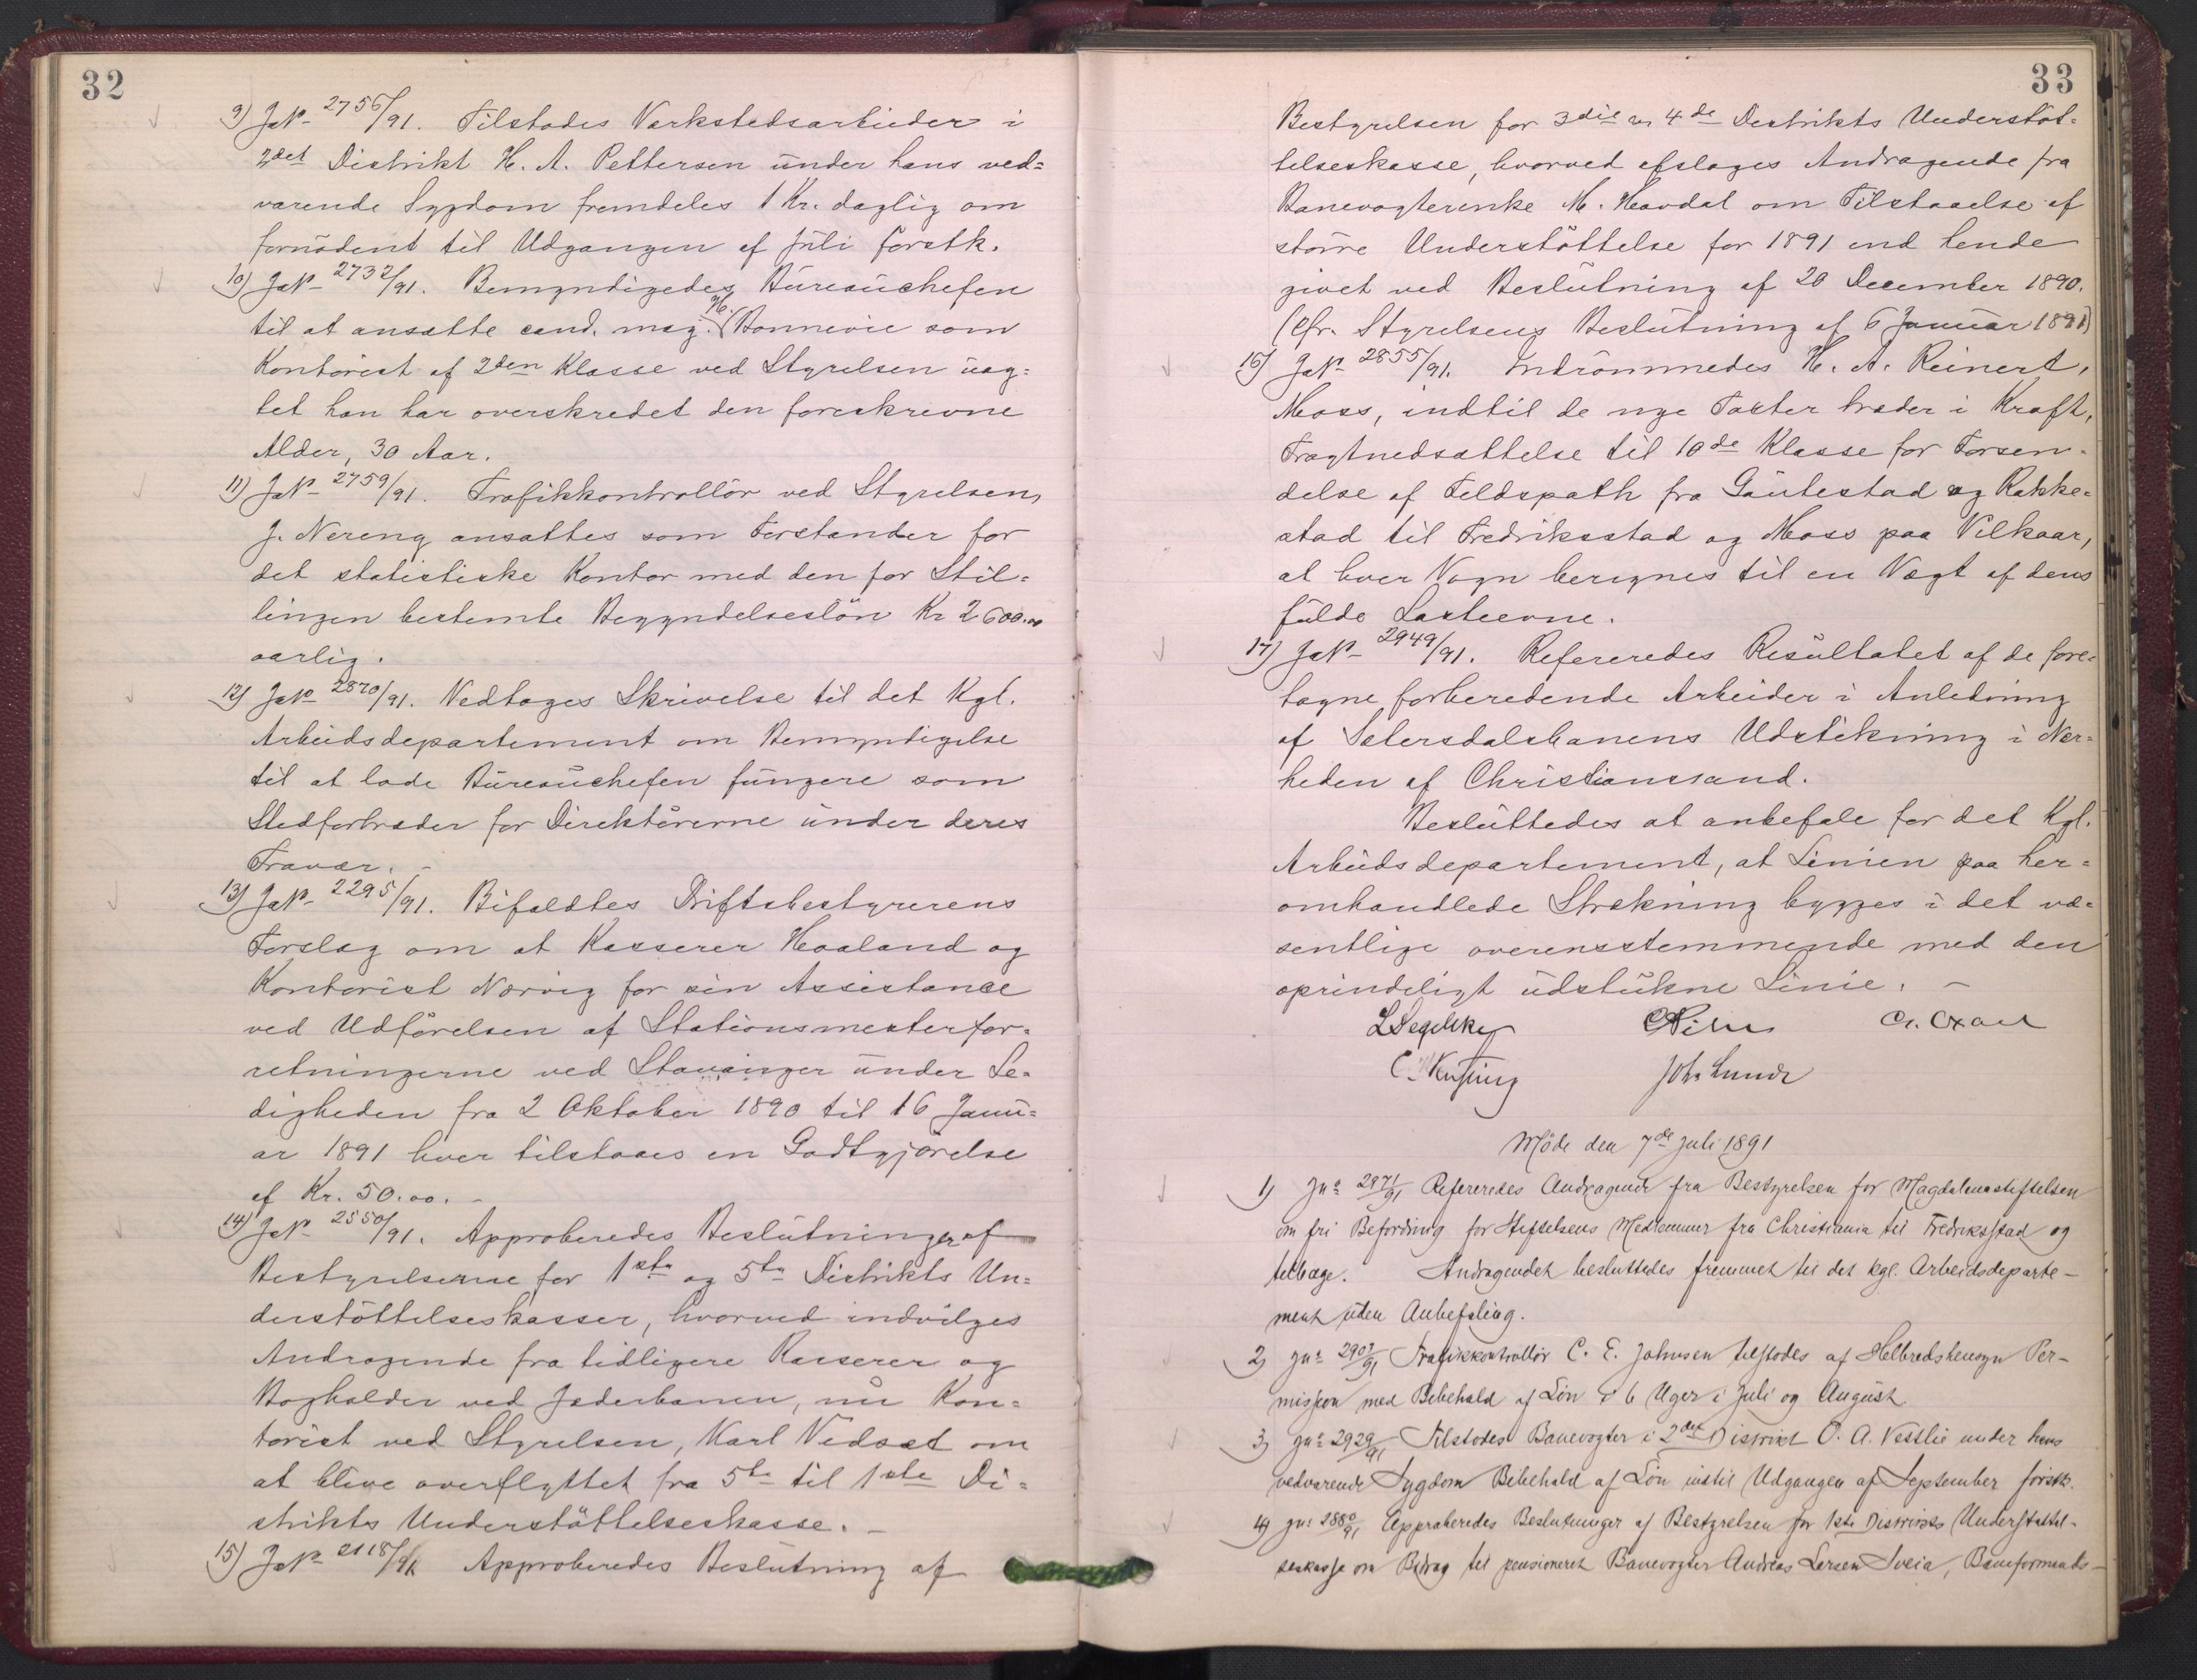 32
9) JNo 2756/91. Tilstodes Værkstedsarbeider i
2det Distrikt H. A. Pettersen under hans ved=
varende Sygdom fremdeles 1 Kr. daglig om
fornødent til Udgangen af Juli førstk.
10) JNo 2732/91. Bemyndigedes Bureauchefen
til at ansætte cand. mag. Hb. Bonnevie som
Kontorist af 2den Klasse ved Styrelsen uag=
tet han har overskredet den foreskrevne
Alder, 30 Aar.
11) JNo 2759/91. Trafikkontrollør ved Styrelsen,
J. Nereng ansattes som Forstander for
det statistiske Kontor med den for Stil=
lingen bestemte Begyndelsesløn Kr 2600.00
aarlig.
12) JNo 2870/91. Vedtoges Skrivelse til det Kgl.
Arbeidsdepartement om Bemyndigelse
til at lade Bureauchefen fungere som
Stedfortræder for Direktørerne under deres
Fravær. -
13) JNo 2295/91. Bifaldtes Driftsbestyrerens
Forslag om at Kasserer Haaland og
Kontorist Nærvig for sin Assistance
ved Udførelsen af Stationsmesterfor=
retningerne ved Stavanger under Le=
digheden fra 2 Oktober 1890 til 16 Janu=
ar 1891 hver tilstaaes en Godtgjørelse
af Kr. 50.00. -
14) JNo 2550/91. Approberedes Beslutninger af
Bestyrelserne for 1ste og 5te Distrikts Un=
derstøttelseskasser, hvorved indvilges
Andragende fra tidligere Kasserer og
Bogholder ved Jæderbanen, nu Kon=
torist ved Styrelsen, Karl Vidsæt om
at blive overflyttet fra 5te til 1ste Di=
strikts Understøttelseskasse. -
15) JNo 2118/91 Approberedes Beslutning af
33
Bestyrelsen for 3die og 4de Distrikts Understøt=
telseskasse, hvorved afslages Andragende fra
Banevogterenke M. Havdal om Tilstaaelse af
større Understøttelse for 1891 end hende
givet ved Beslutning af 20 December 1890.
(Cfr. Styrelsens Beslutning af 6 Januar 1891)
16) JNo 2855/91. Indrømmedes H. A. Reinert,
Moss, indtil de nye Taxter træder i Kraft,
Fragtnedsættelse til 10de Klasse for Forsen=
delse af Feldspath fra Gautestad og Rakke=
stad til Fredriksstad og Moss paa Vilkaar,
at hver Vogn beregnes til en Vægt af dens
fulde Lasteevne.
17) JNo 2949/91. Refereredes Resultatet af de fore=
tagne forberedende Arbeider i Anledning
af Sætersdalsbanens Udstikning i Nær=
heden af Christianssand.
Besluttedes at anbefale for det Kgl.
Arbeidsdepartement, at Linien paa her=
omhandlede Strækning bygges i det væ=
sentlige overensstemmende med den
oprindeligt udstukne Linie. -
L Segelcke C Pihl
Joh. Lunde
Møde den 7de Juli 1891
1) JNo 2871/91 Refereredes Andragende fra Bestyrelsen for Magdalenastiftelsen
om fri Befordring for Stiftelsens Medlemmer fra Christiania til Fredriksstad og
tilbage. Andragendet besluttedes fremmet til det kgl. Arbeidsdeparte-
ment uden Anbefaling.
2) JNo 2907/91 Trafikkontrollør C. E. Johnsen tilstodes af Helbredshensyn Per-
mission med Bibehold af Løn i 6 Uger i Juli og August.
3) JNo 2929/91 Tilstodes Banevogter i 2det Distrikt O. A. Vestlie under hans
vedvarende Sygdom Bibehold af Løn indtil Udgangen af September førstk.
4) JNo 2880/91 Approberedes Beslutninger af Bestyrelsen for 1ste Distrikts Understøttel-
seskasse om Bidrag til pensioneret Banevogter Andreas Larsen Sveia, Baneformands-